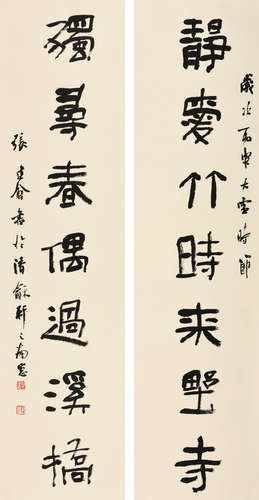 歲次大雪時節
靜愛竹時来野寺
獨尋春偶過溪橋
張建會書於清龢軒之南窗